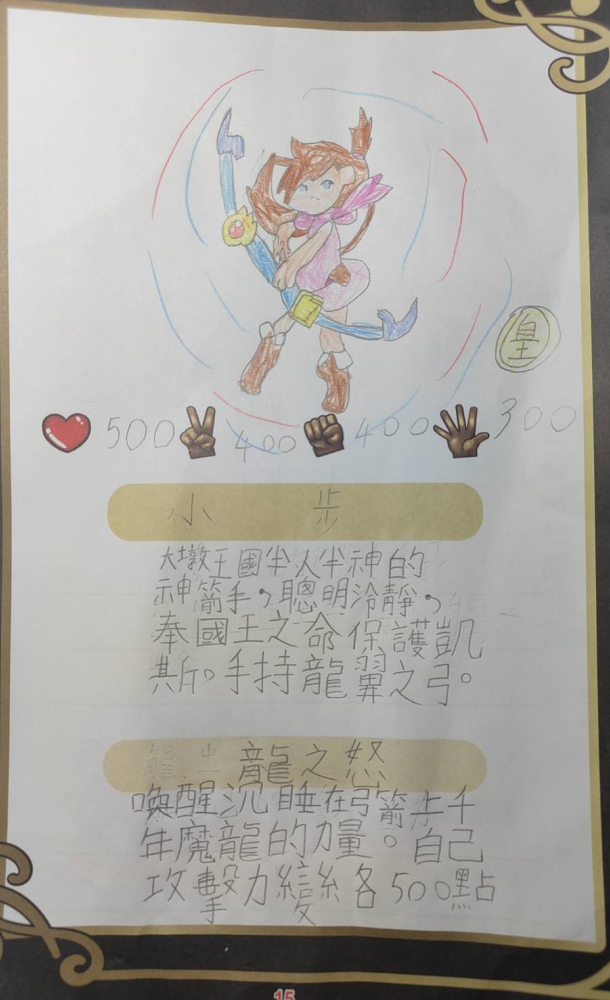 皇
500 400 400 300
小步
大墩王國半人半神的
神箭手,聰明冷靜,
奉國王之命保護凱
斯。手持龍翼之弓。
龍之怒
喚醒沉睡在弓箭上千
年魔龍的力量。自己
攻擊力變各500點
15